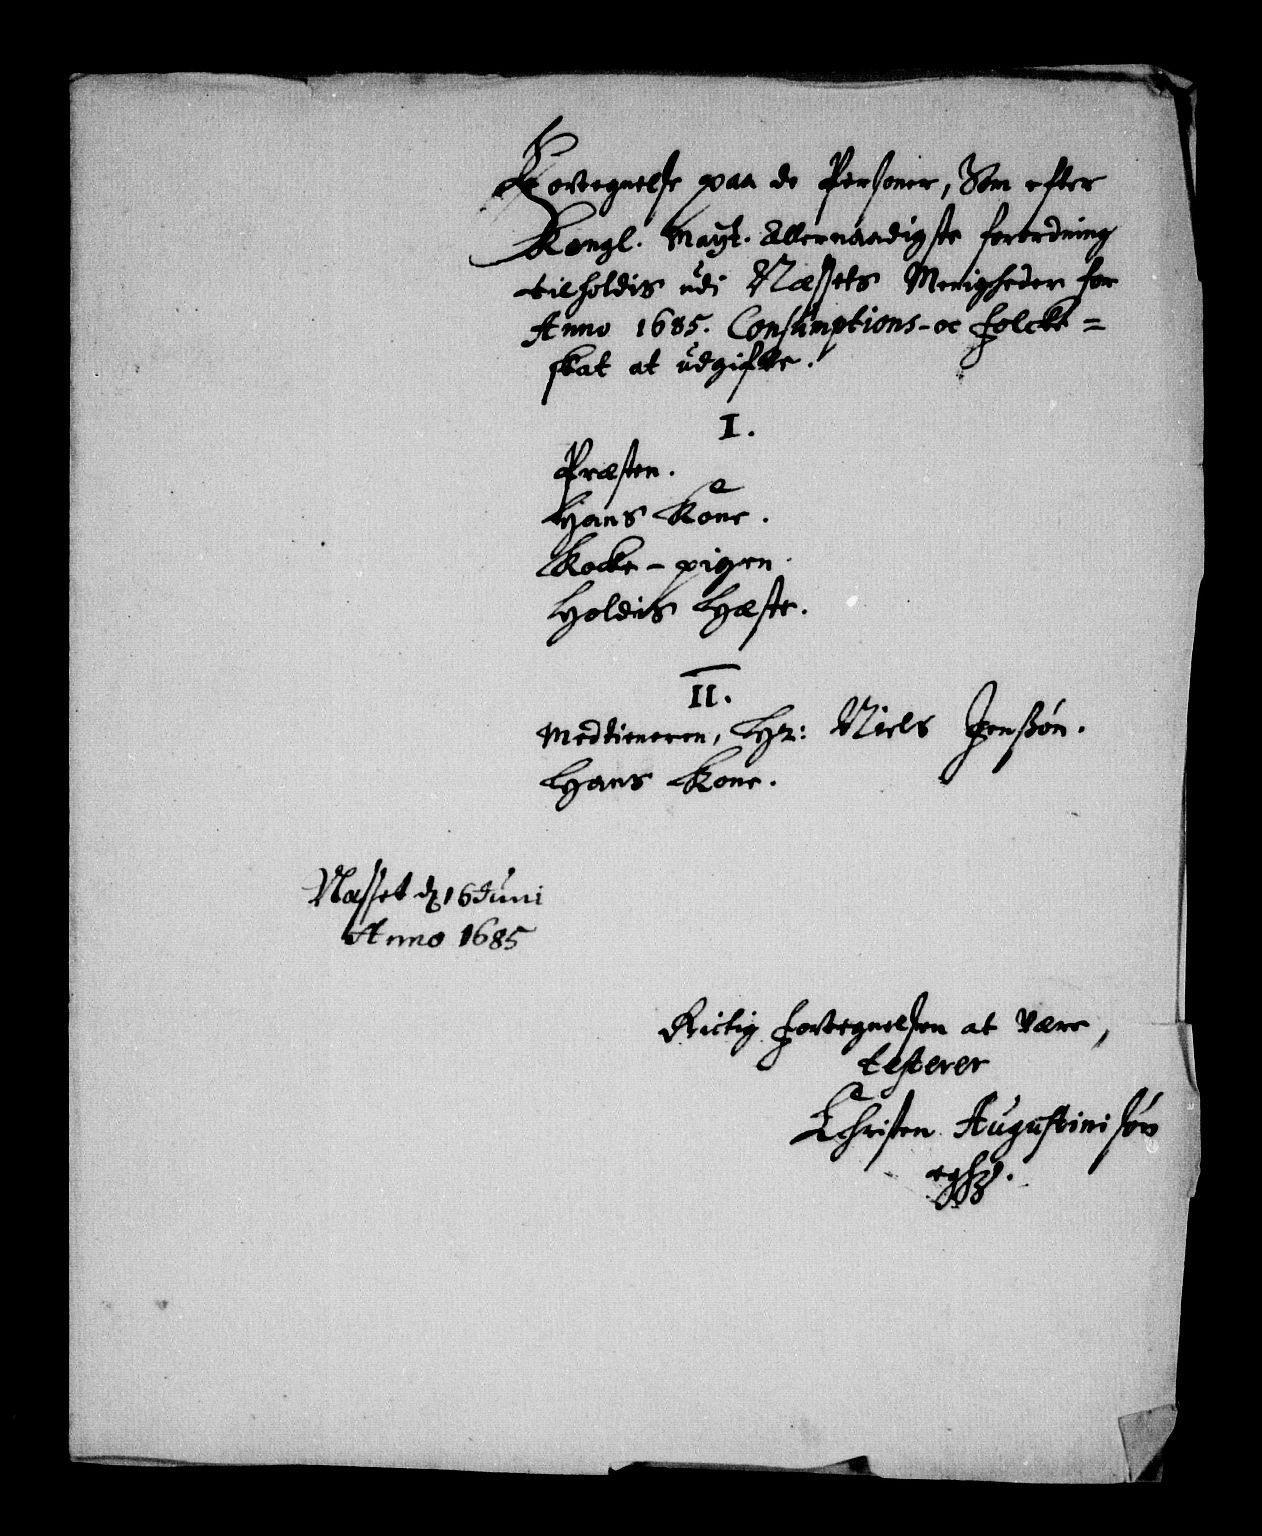 Fortegnelse paa de Personer, Som efter
Kongl. Mayt. Allernaadigste forordning
tilholdis udi Næssets Menigheder for
Anno 1685. Consumptions-oc folcke=
skat at udgifte.
I.
Præsten.
Hans Kone.
Kocke-pigen.
Holdis Hæste.
II.
Medtieneren, Hr: Niels Jenssøn.
Hans Kone.
Næsset d 16 Juni
Anno 1685
Rictig fortegnelsen at være,
testerer
Christen Augustini søn